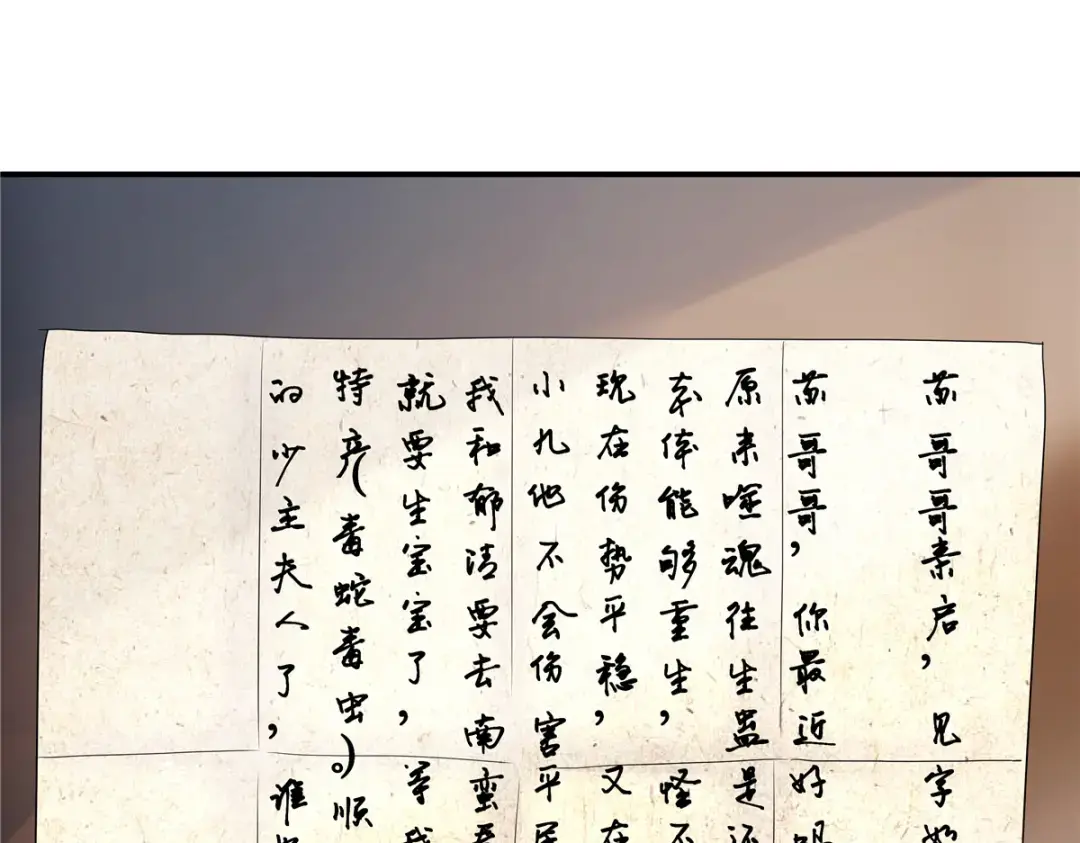 苏哥哥亲启，见字如
苏哥哥，你最近好吗
原来噬魂往生蛊是还
本体能够重生，怪不
现在伤势平稳，又在
小九他不会伤害平民
我和郁清要去南蛮
就要生宝宝了，等我
特产（毒蛇毒虫）。顺
的少主夫人了，谁